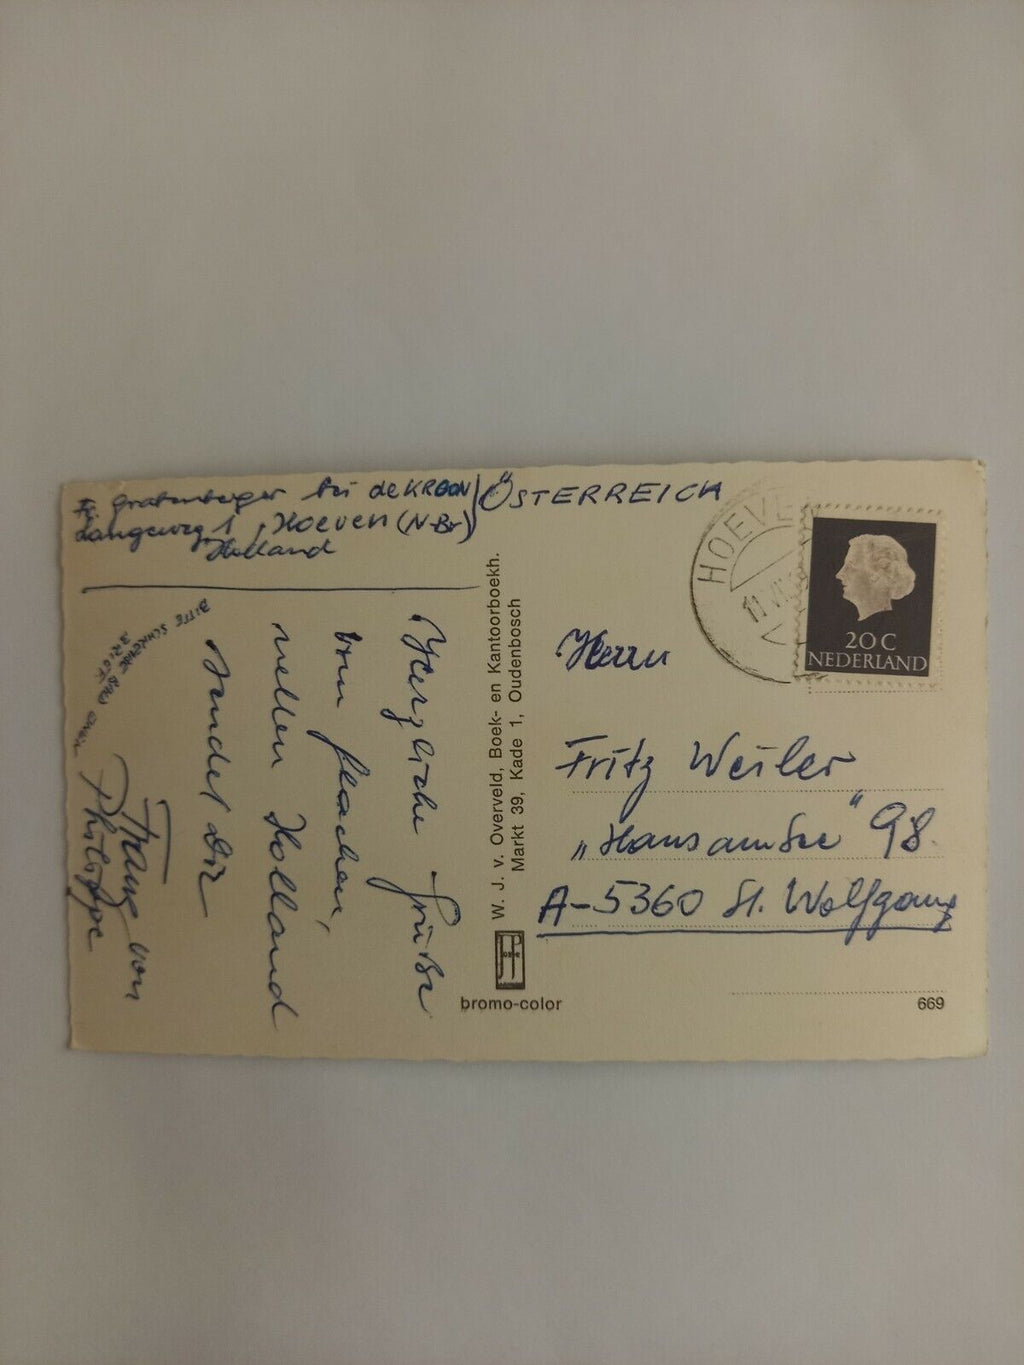 Fr. Grabenberger bei de KROON
Langeweg 1, Hoeven (N-Br)
Holland
ÖSTERREICH
Herzliche Grüße
vom flachen,
nellen Holland
sendet Dir
Franz von
Philippe
BITTE SCHREIBE
BRIEF
W. J. v. Overveld, Boek- en Kantoorboekh.
Markt 39, Kade 1, Oudenbosch
JosPé
bromo-color
HOEVE
11 VII
20 C
NEDERLAND
Herrn
Fritz Weiler
„Haus am See" 98
A-5360 St. Wolfgang
669